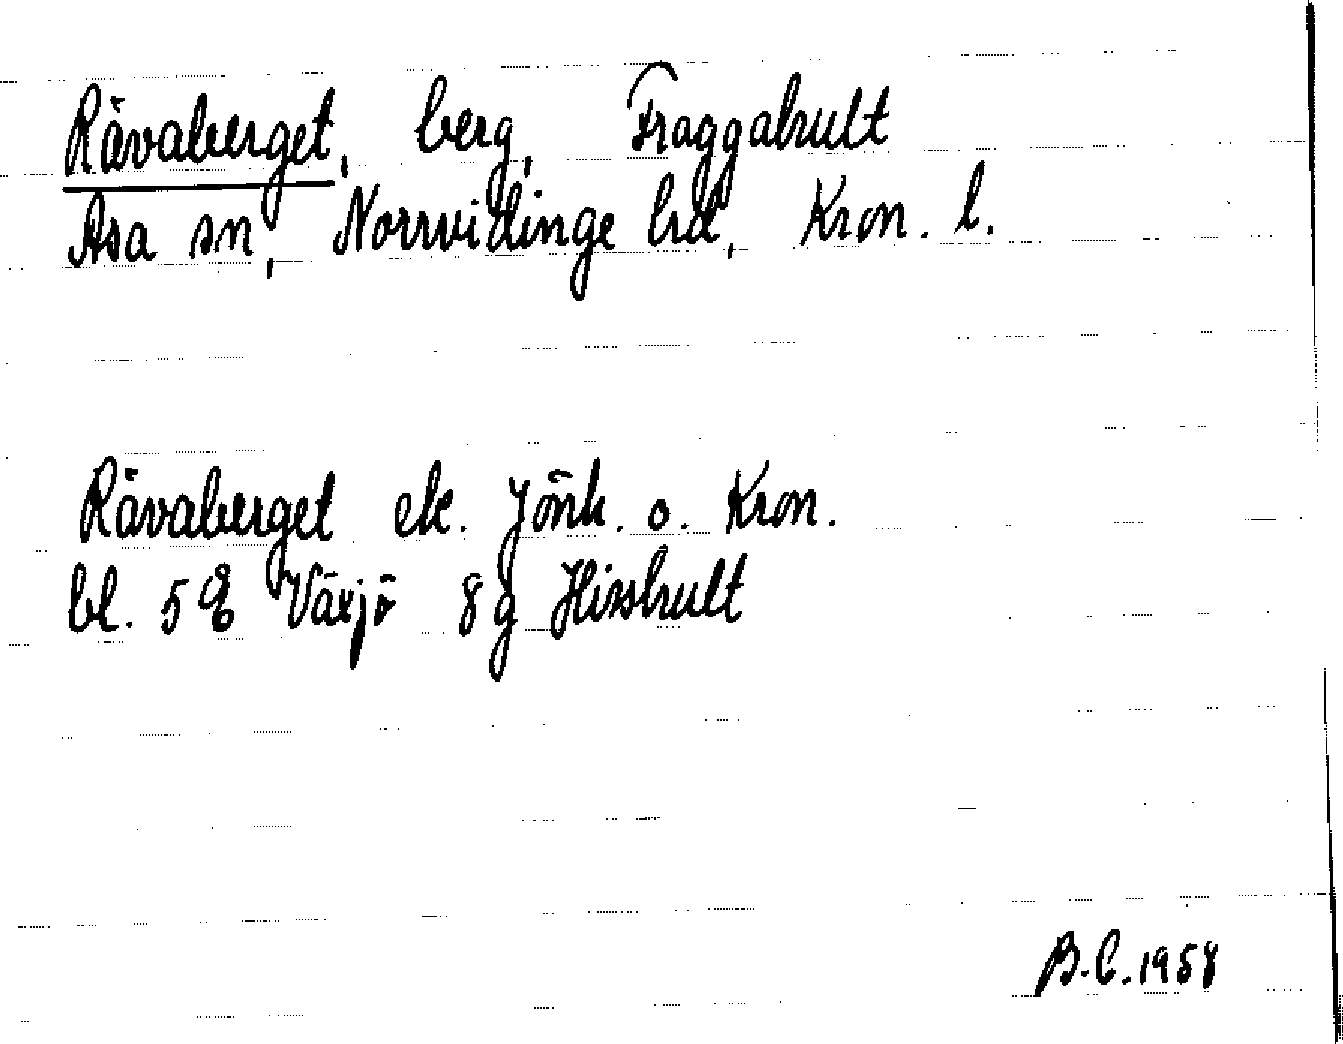 Rävaberget, berg, Fraggabrult
Asa sn, Norrvidinge hd, Kron. l.
Rävaberget ek. Jönk. o. Kron.
bl. 5 E Växjö 8 g Hisshult
B.C. 1958